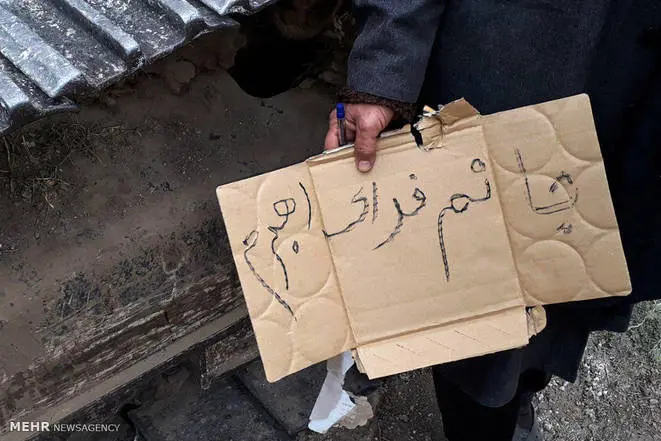 جانم فر ابراهیم
MEHR NEWSAGENCY